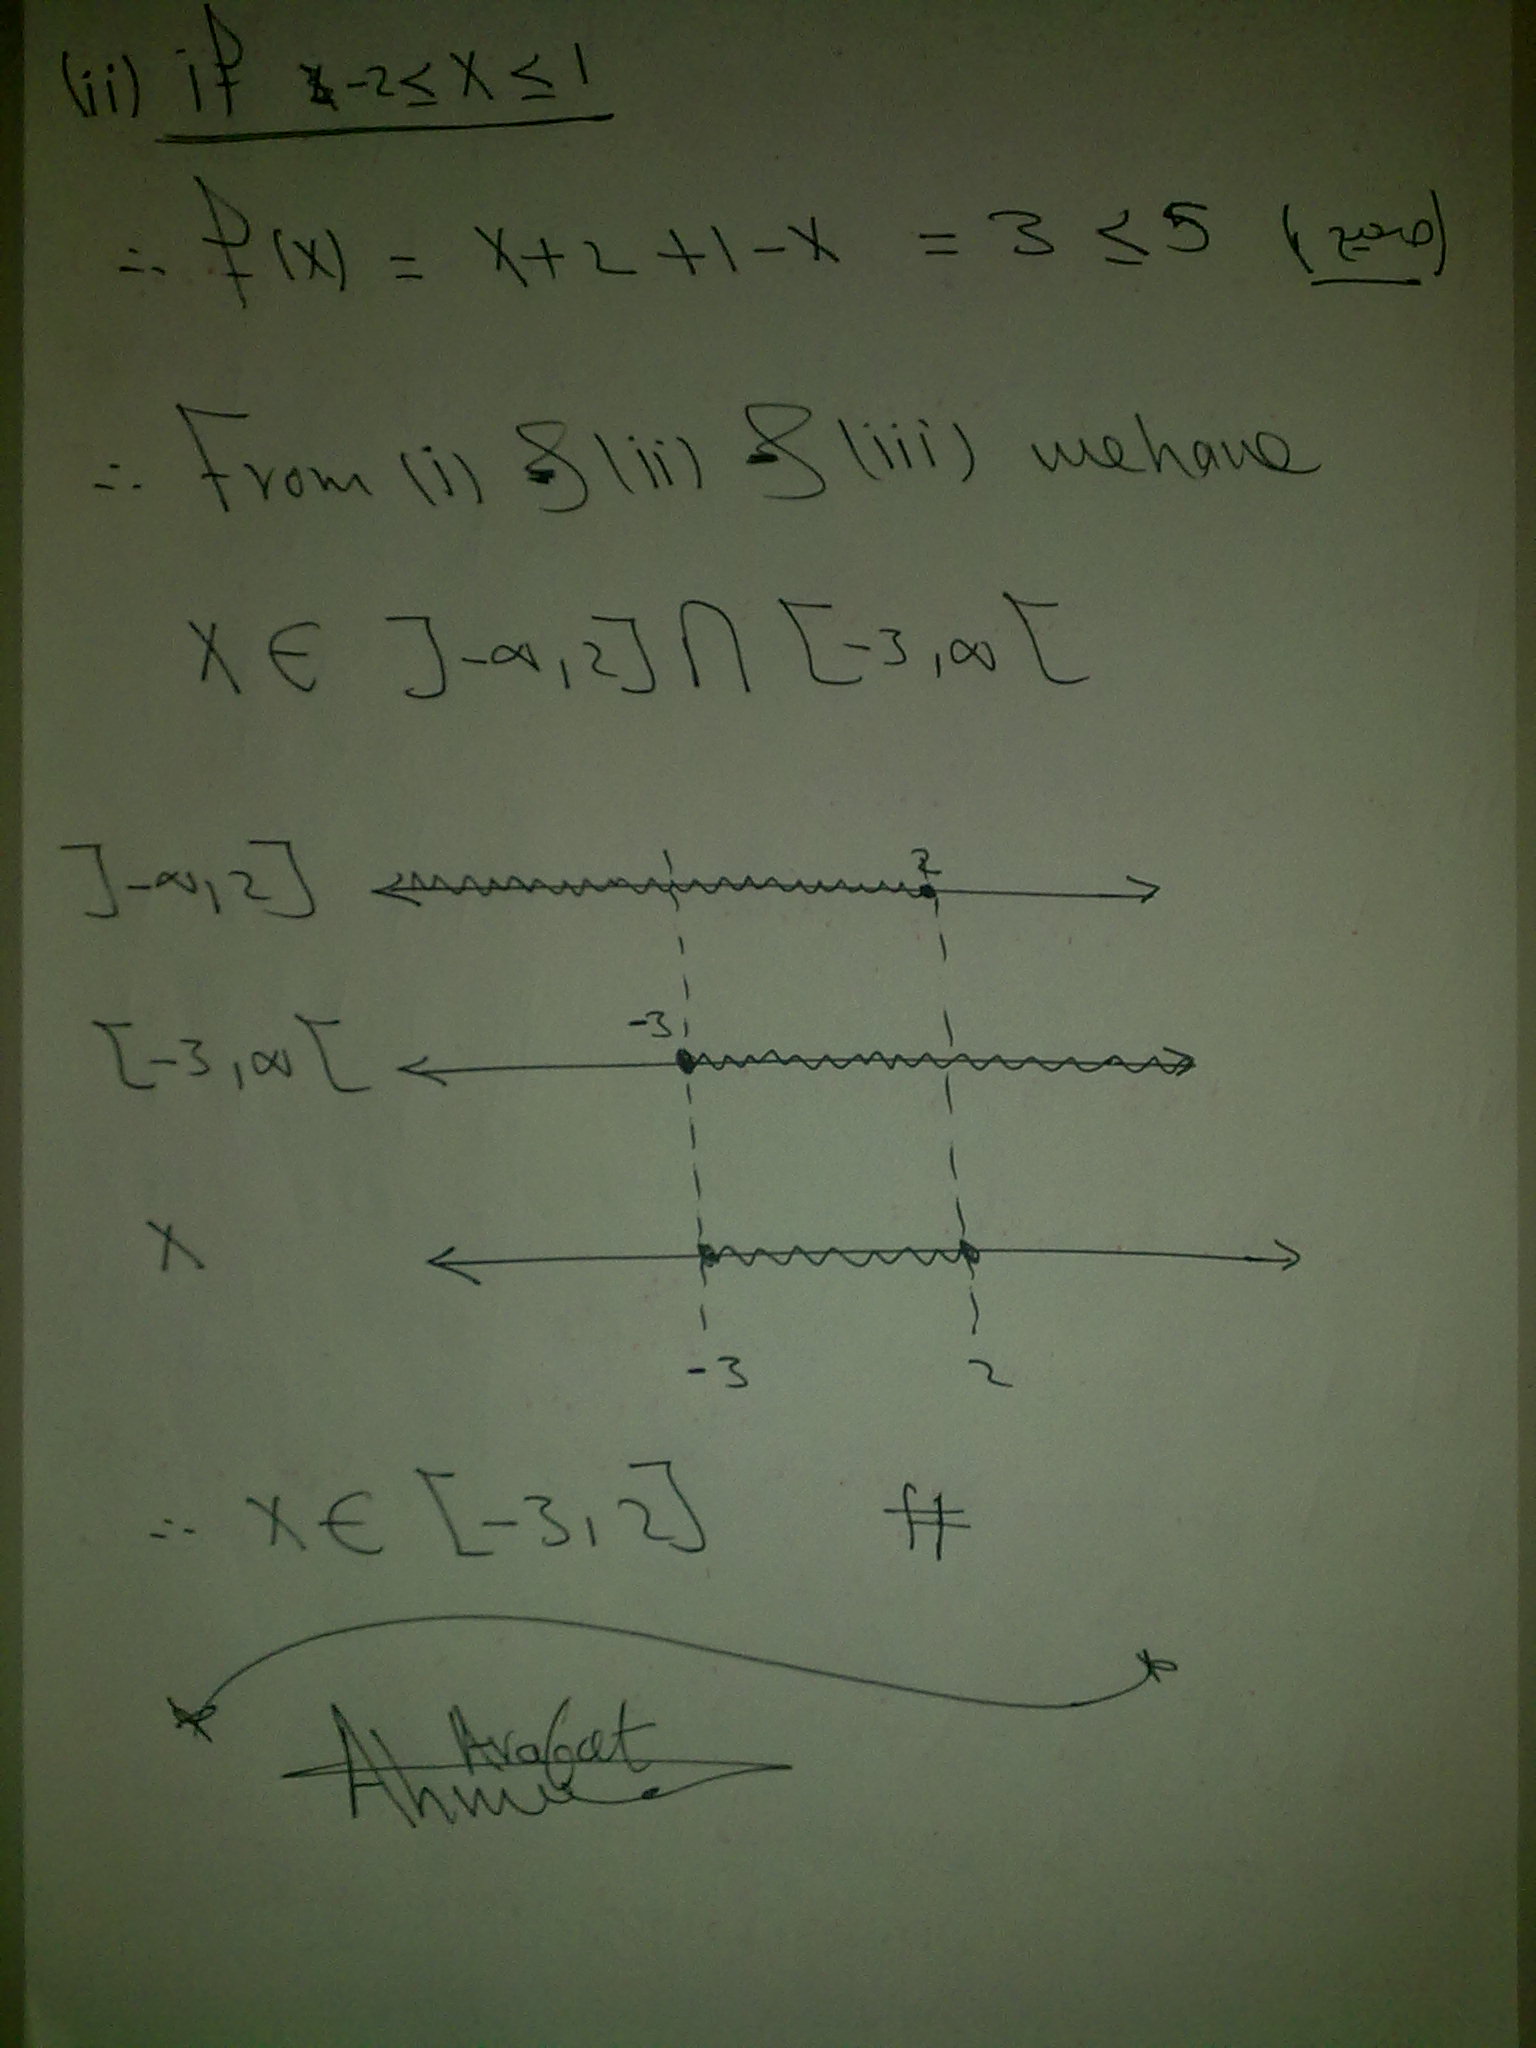 (ii) if -2 ≤ x ≤ 1
∴ f(x) = x+2+1-x = 3 ≤ 5 (zero)
∴ From (i) & (ii) & (iii) we have
x ∈ ]-∞,2] ∩ [-3,∞[
]-∞,2] 2
[-3,∞[ -3
x
-3 2
∴ x ∈ [-3,2] #
Arafat